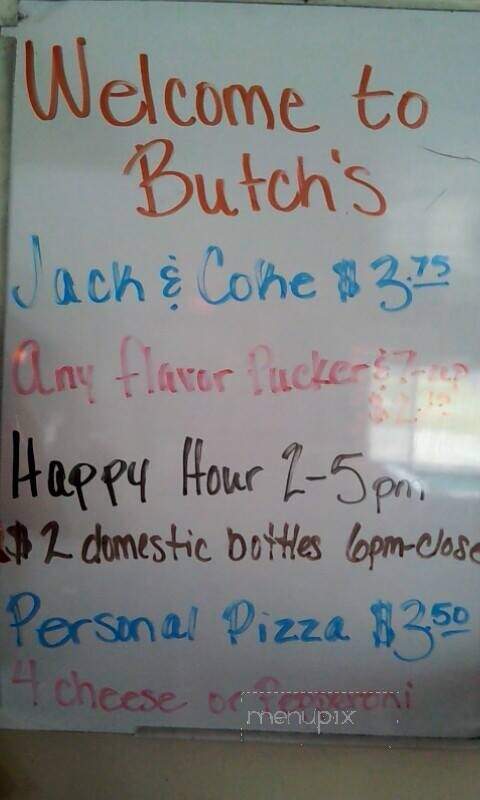 Welcome to
Butch's
Jack & Coke $3.75
Any flavor Pucker & 7-up
Happy Hour 2-5pm
$2 domestic bottles 6pm-close
Personal Pizza $3.50
4 cheese or Pepperoni
menupix